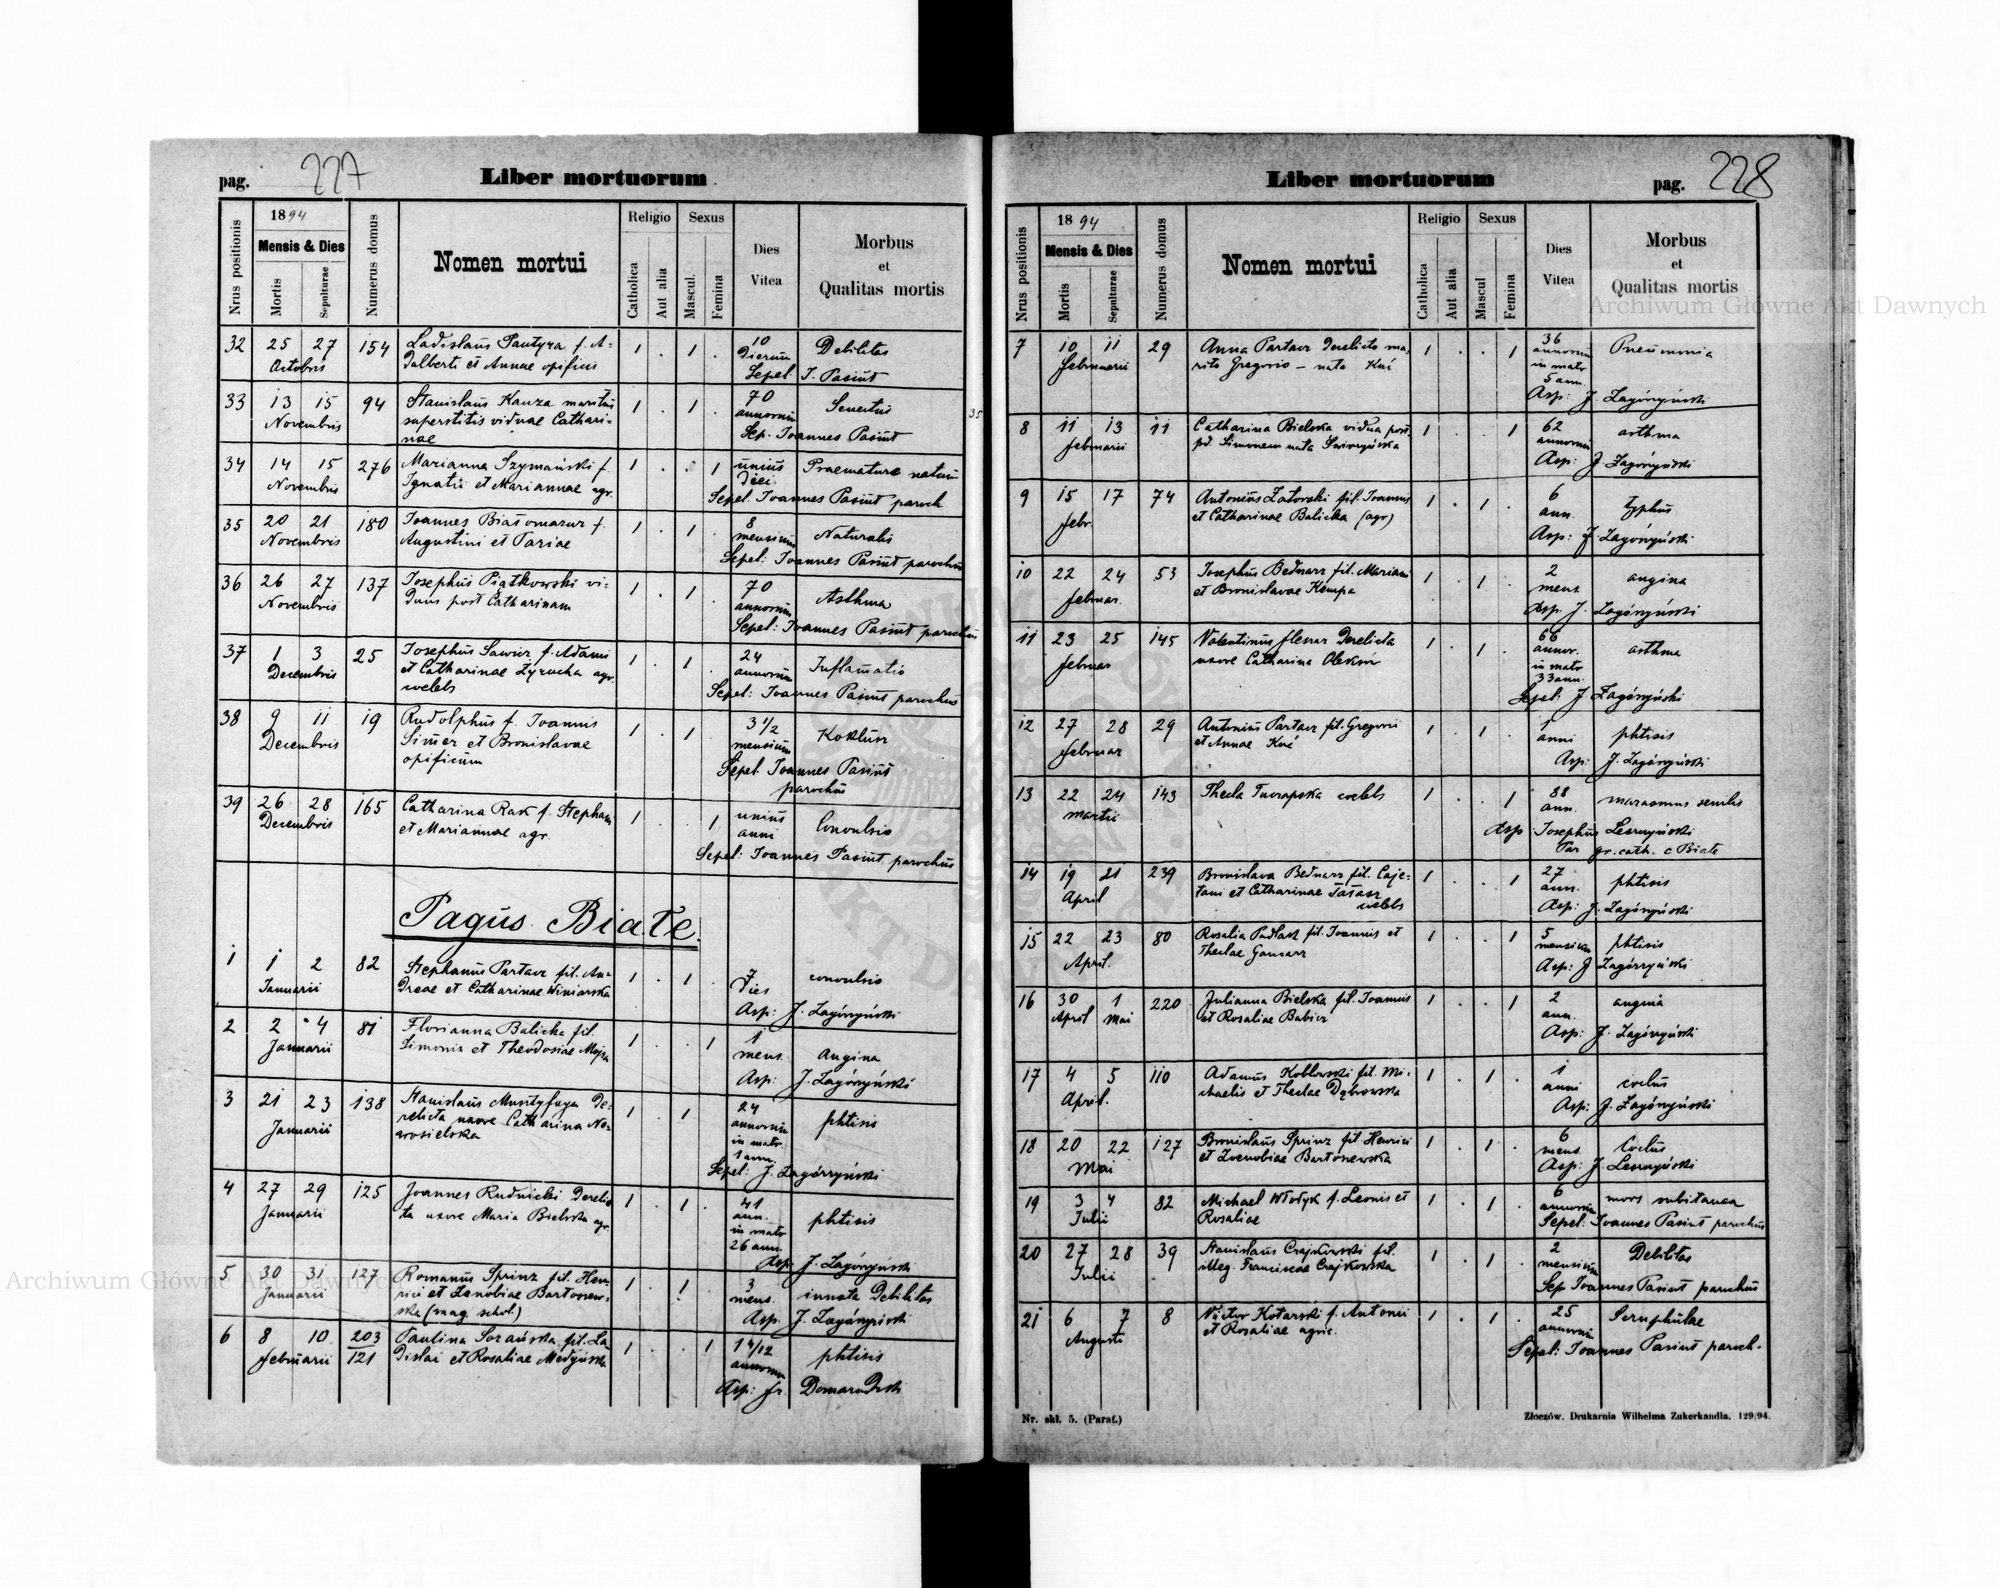 pag. 227 Liber mortuorum
Nrus positionis
1894
Mensis & Dies
Mortis
Sepulturae
Numerus domus
Nomen mortui
Religio
Catholica
Aut alia
Sexus
Mascul.
Femina
Dies
Vitea
Morbus
et
Qualitas mortis
32 25 27 154 Ladislaus f. A- 1 . 1 . 10 Debilitas
Octobris dalberti et Annae opificis dierum
Sepel J. Pasiut
33 13 15 94 Stanislaus Kauza maritus 1 . 1 . 70 Senectus
Novembris superstitis viduae Cathari- annorum
nae Sep. Joannes Pasiut
34 14 15 276 Marianna Szymański f. 1 . . 1 unius Praemature natum
Novembris Ignatii et Mariannae agr. diei
Sepel. Joannes Pasiut paroch
35 20 21 180 Joannes Białomazur f. 1 . 1 . 8 Naturalis
Novembris Augustini et Pariae mensium
Sepel: Joannes Pasiut parochus
36 26 27 137 Josephus Piątkowski vi- 1 . 1 . 70 Asthma
Novembris duus post Catharinam annorum
Sepel: Joannes Pasiut parochus
37 1 3 25 Josephus Sawicz f. Adami 1 . 1 . 24 Inflamatio
Decembris et Catharinae Zyrucha agr. annorum
coelebs Sepel: Joannes Pasiut parochus
38 9 11 19 Rudolphus f. Joannis 1 . 1 . 3 1/2 Koklusz
Decembris et Bronislavae mensium
opificum Sepel. Joannes Pasiut
parochus
39 26 28 165 Catharina Rak f. Stephani 1 . . 1 unius Convulsio
Decembris et Mariannae agr. anni
Sepel: Joannes Pasiut parochus
Pagus Białe.
1 1 2 82 Stephanus Partacz fil. An- 1 . 1 . 7 convulsio
Januarii dreae et Catharinae Winiarska dies
Asp: J. Zagórzyński
2 2 4 81 Florianna Balicka fil. 1 . . 1 1 Angina
Januarii Simonis et Theodosiae mens.
Asp: J. Zagórzyński
3 21 23 138 Stanislaus De- 1 . 1 24 phtisis
Januarii relicta uxore Catharina No- annorum
wosielska in matr.
1 ann.
Sepel: J. Zagórzyński
4 27 29 125 Joannes Rudnicki Derelic- 1 . 1 41 phtisis
Januarii ta uxore Maria Bielska agr. ann.
in matr
26 ann.
Asp: J. Zagórzyński
5 30 31 127 Romanus Sprinz fil. Hen- 1 . 1 3 innata Debilitas
Januarii rici et Zenobiae Bartoszew- mens.
ska (mag. schol.) Asp. J. Zagórzyński
6 8 10 203 Paulina fil. La- 1 . . 1 1 4/12 phtisis
februarii 121 dislai et Rosaliae Medyńska annorum
Asp: fr. Domaradzki
Liber mortuorum pag. 228
Nrus positionis
1894
Mensis & Dies
Mortis
Sepulturae
Numerus domus
Nomen mortui
Religio
Catholica
Aut alia
Sexus
Mascul
Femina
Dies
Vitea
Morbus
et
Qualitas mortis
7 10 11 29 Anna Partacz Derelicto ma- 1 . . 1 36 Pneumonia
februarii rito Gregorio – nata Kuć annorum
in matr
5 ann.
Asp: J. Zagórzyński
8 11 13 11 Catharina Bielska vidua post 1 . . 1 62 asthma
februarii Simonem nata annorum
Asp: J Zagórzyński
9 15 17 74 Antonius Zatorski fil. Joannis 1 . 1 . 6 typhus
febr. et Catharinae Balicka (agr) ann.
Asp: J. Zagórzyński
10 22 24 53 Josephus Bednarz fil. Mariani 1 . 1 . 2 angina
februar. et Bronislavae Kempa mens.
Asp. J. Zagórzyński
11 23 25 145 Valentinus Derelicta 1 . 1 . 66 asthma
februar uxore Catharina annor.
in matr
33 ann.
Sepel: J Zagórzyński
12 27 28 29 Antonius Partacz fil. Gregorii 1 . 1 . 1 phtisis
februar et Annae Kuć anni
Asp: J. Zagórzyński
13 22 24 143 Thecla coelebs 1 . . 1 88 marasmus senilis
martii ann.
Asp Josephus Leszczyński
Par gr. cath. c Białe
14 19 21 239 Bronislava Bednarz fil. Caje- 1 . . 1 27 phtisis
April tani et Catharinae Tatasz ann.
coelebs Asp: J. Zagórzyński
15 22 23 80 Rosalia fil. Joannis et 1 . . 1 5 phtisis
April. Theclae mensium
Asp: J Zagórzyński
16 30 1 220 Julianna Bielska fil. Joannis 1 . . 1 2 angina
April Mai et Rosaliae Babicz ann.
Asp: J. Zagórzyński
17 4 5 110 Adamus Koblowski fil. Mi- 1 . 1 . 1
April. chaelis et Theclae Dąbrowska anni
Asp: J. Zagórzyński
18 20 22 127 Bronislaus Sprinz fil Henrici 1 . 1 . 6
Mai et Zvenobiae Bartoszewska mens.
Asp: J. Leszczyński
19 3 4 82 Michael Włodyk f. Leonis et 1 . 1 . 6 mors subitanea
Julii Rosaliae annorum
Sepel: Joannes Pasiut parochus
20 27 28 39 Stanislaus Czajkowski fil. 1 . 1 . 2 Debilitas
Julii illeg. Franciscae Czajkowska mensium
Sep Joannes Pasiut parochus
21 6 7 8 Victor Kotarski f. Antonii 1 . 1 . 25 Scruphulae
Augusti et Rosaliae agric. annorum
Sepel: Joannes Pasiut paroch.
Nr. skł. 5. (Paraf.) Złoczów. Drukarnia Wilhelma Zukerkandla. 129/94.
Archiwum Główne Akt Dawnych
Archiwum Główne Akt Dawnych